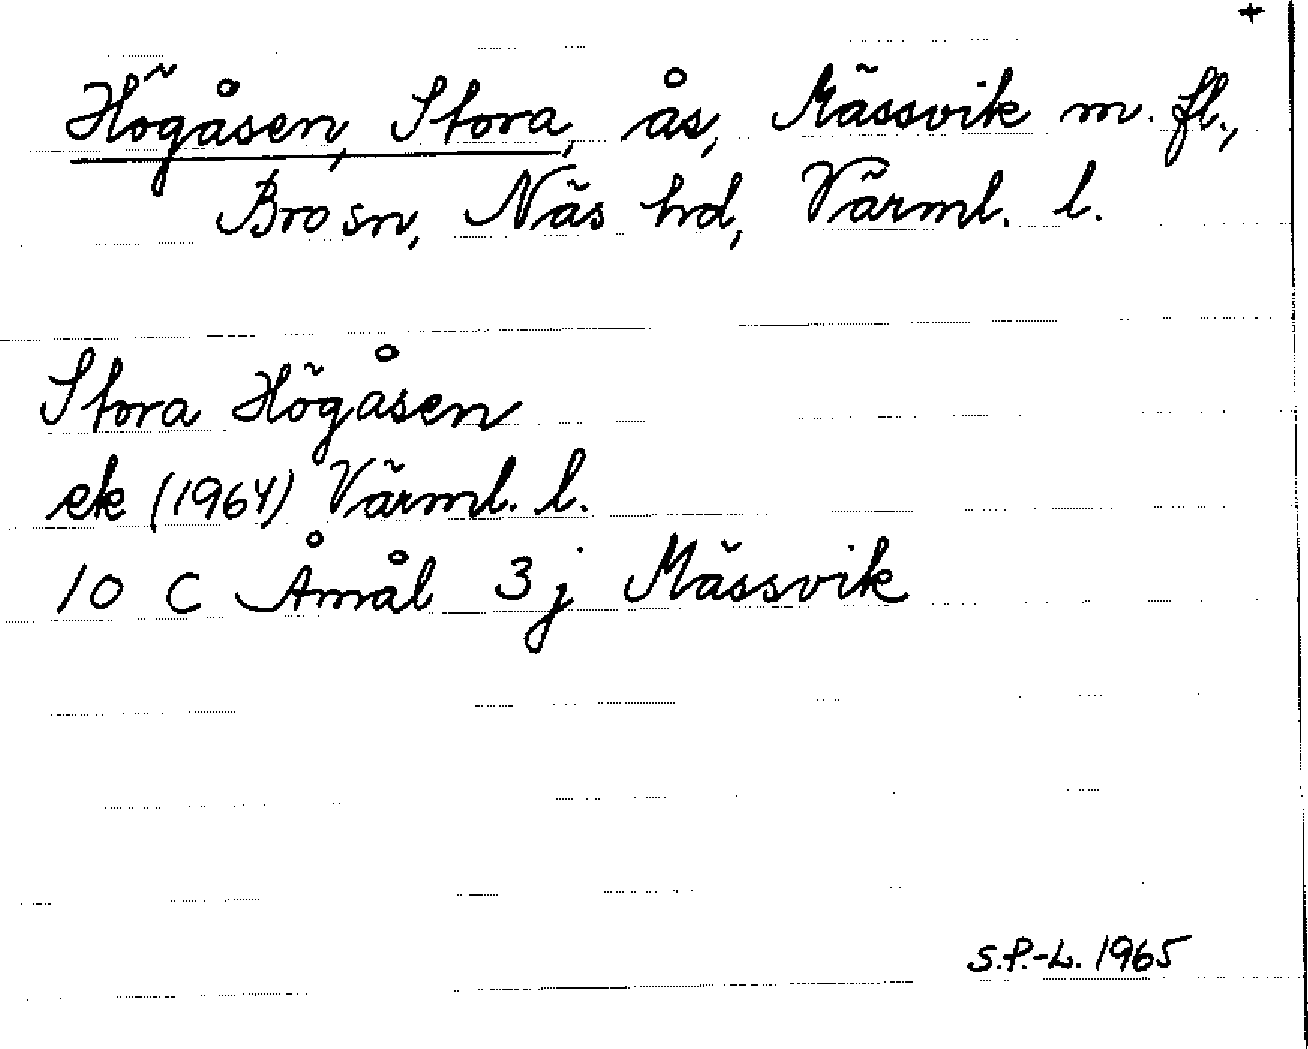 +
Högåsen, Stora, ås, Mässvik m. fl.,
Bro sn, Näs hd, Värml. l.
Stora Högåsen
ek (1964) Värml. l.
10 C Åmål 3 j Mässvik
S.P.-L. 1965